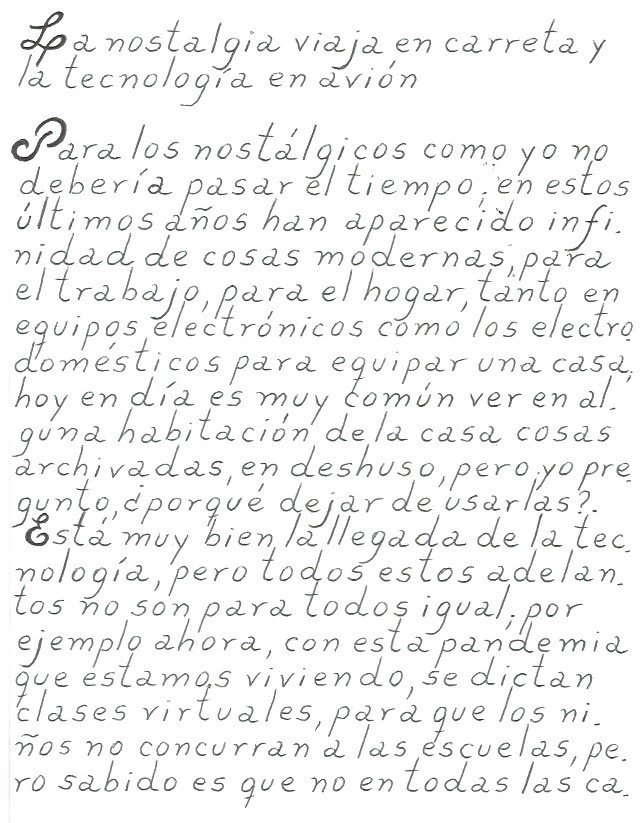 La nostalgia viaja en carreta y
la tecnología en avión
Para los nostálgicos como yo no
debería pasar el tiempo; en estos
últimos años han aparecido infi.
nidad de cosas modernas, para
el trabajo, para el hogar, tanto en
equipos electrónicos como los electro
domésticos para equipar una casa,
hoy en día es muy común ver en al.
guna habitación de la casa cosas
archivadas, en deshuso, pero yo pre.
gunto, ¿porqué dejar de usarlas?.
Está muy bien la llegada de la tec.
nología, pero todos estos adelan.
tos no son para todos igual; por
ejemplo ahora, con esta pandemia
que estamos viviendo, se dictan
clases virtuales, para que los ni.
ños no concurran a las escuelas, pe.
ro sabido es que no en todas las ca.